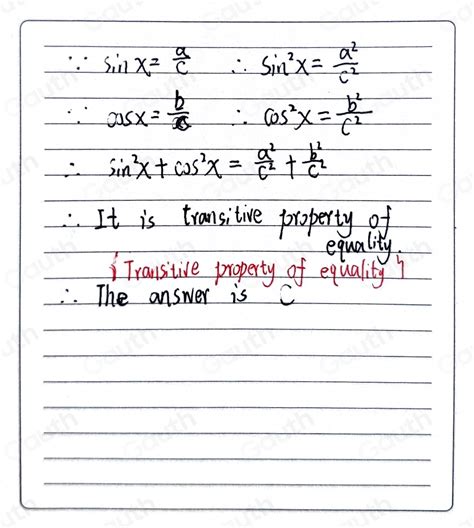 ∵ sin x = a/c ∴ sin²x = a²/c²
∵ cos x = b/c ∴ cos²x = b²/c²
∴ sin²x + cos²x = a²/c² + b²/c²
∴ It is transitive property of
equality.
{Transitive property of equality}
∴ The answer is C